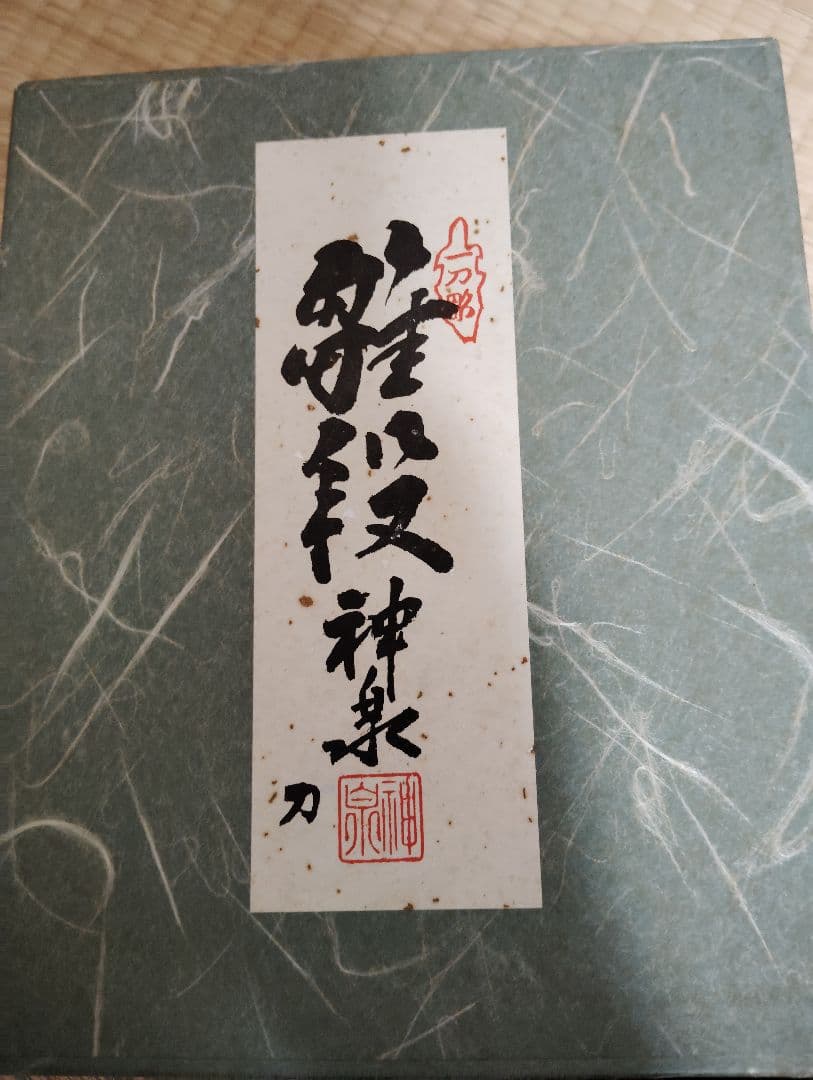 一刀彫
雛段
神泉
刀
神泉